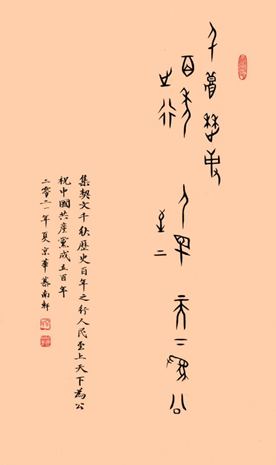 千秋歷史
百年
之行
人民
至上
天下為公
集契文千秋歷史百年之行人民至上天下為公
祝中國共產黨成立百年
二零二一年夏京華慕南軒